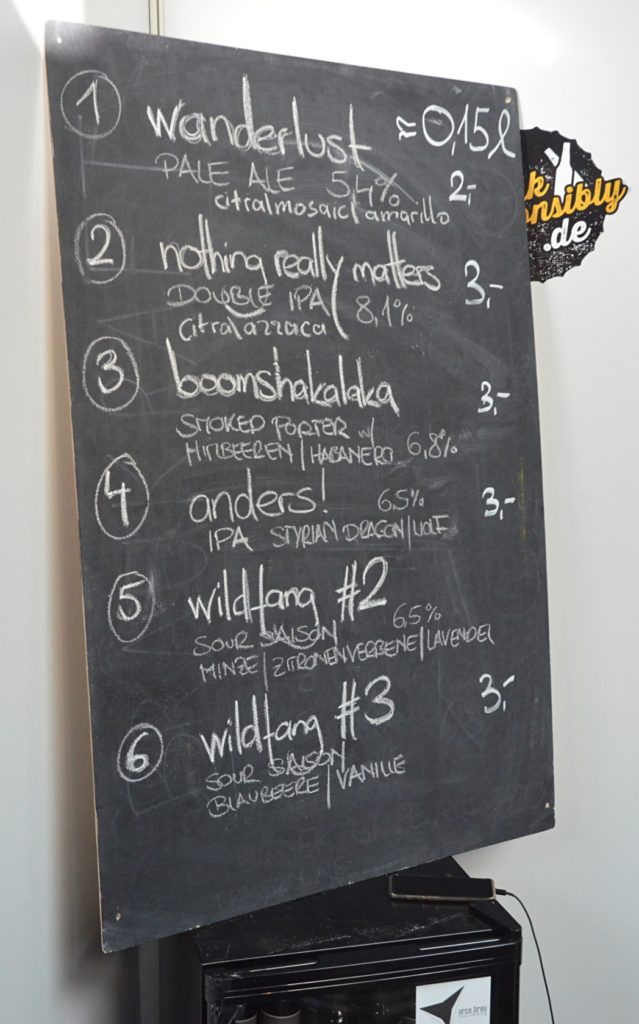 1 wanderlust ≈0,15l
PALE ALE 5,4% 2,-
citra/mosaic/amarillo
2 nothing really matters 3,-
DOUBLE IPA 8,1%
citra/azzaca
3 boomshakalaka 3,-
SMOKED PORTER w/
HIMBEEREN/HABANERO 6,8%
4 anders! 6,5% 3,-
IPA STYRIAN DRAGON/WOLF
5 wildfang #2
SOUR SAISON 6,5%
MINZE/ZITRONENVERBENE/LAVENDEL
6 wildfang #3 3,-
SOUR SAISON
BLAUBEERE/VANILLE
nk
onsibly
.de
orca brau